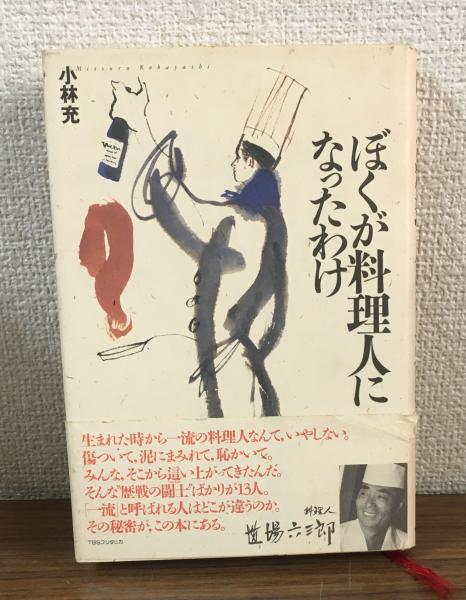 Mitsuru Kobayashi
小林充
ぼくが料理人に
なったわけ
生まれた時から一流の料理人なんて、いやしない。
傷ついて、泥にまみれて、恥かいて。
みんな、そこから這い上がってきたんだ。
そんな“歴戦の闘士”ばかりが13人。
「一流」と呼ばれる人はどこが違うのか。
その秘密が、この本にある。
TBSブリタニカ
料理人
道場六三郎